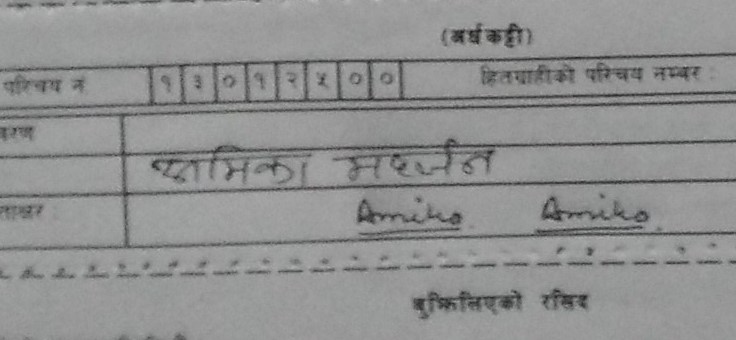 (अर्धकट्टी)
परिचय नं १ ३ ० १ २ ५ ० ० हितग्राहीको परिचय नम्बर :
वरण
मिका महर्जन
ताक्षर : Amika Amika
बुझिलिएको रसिद